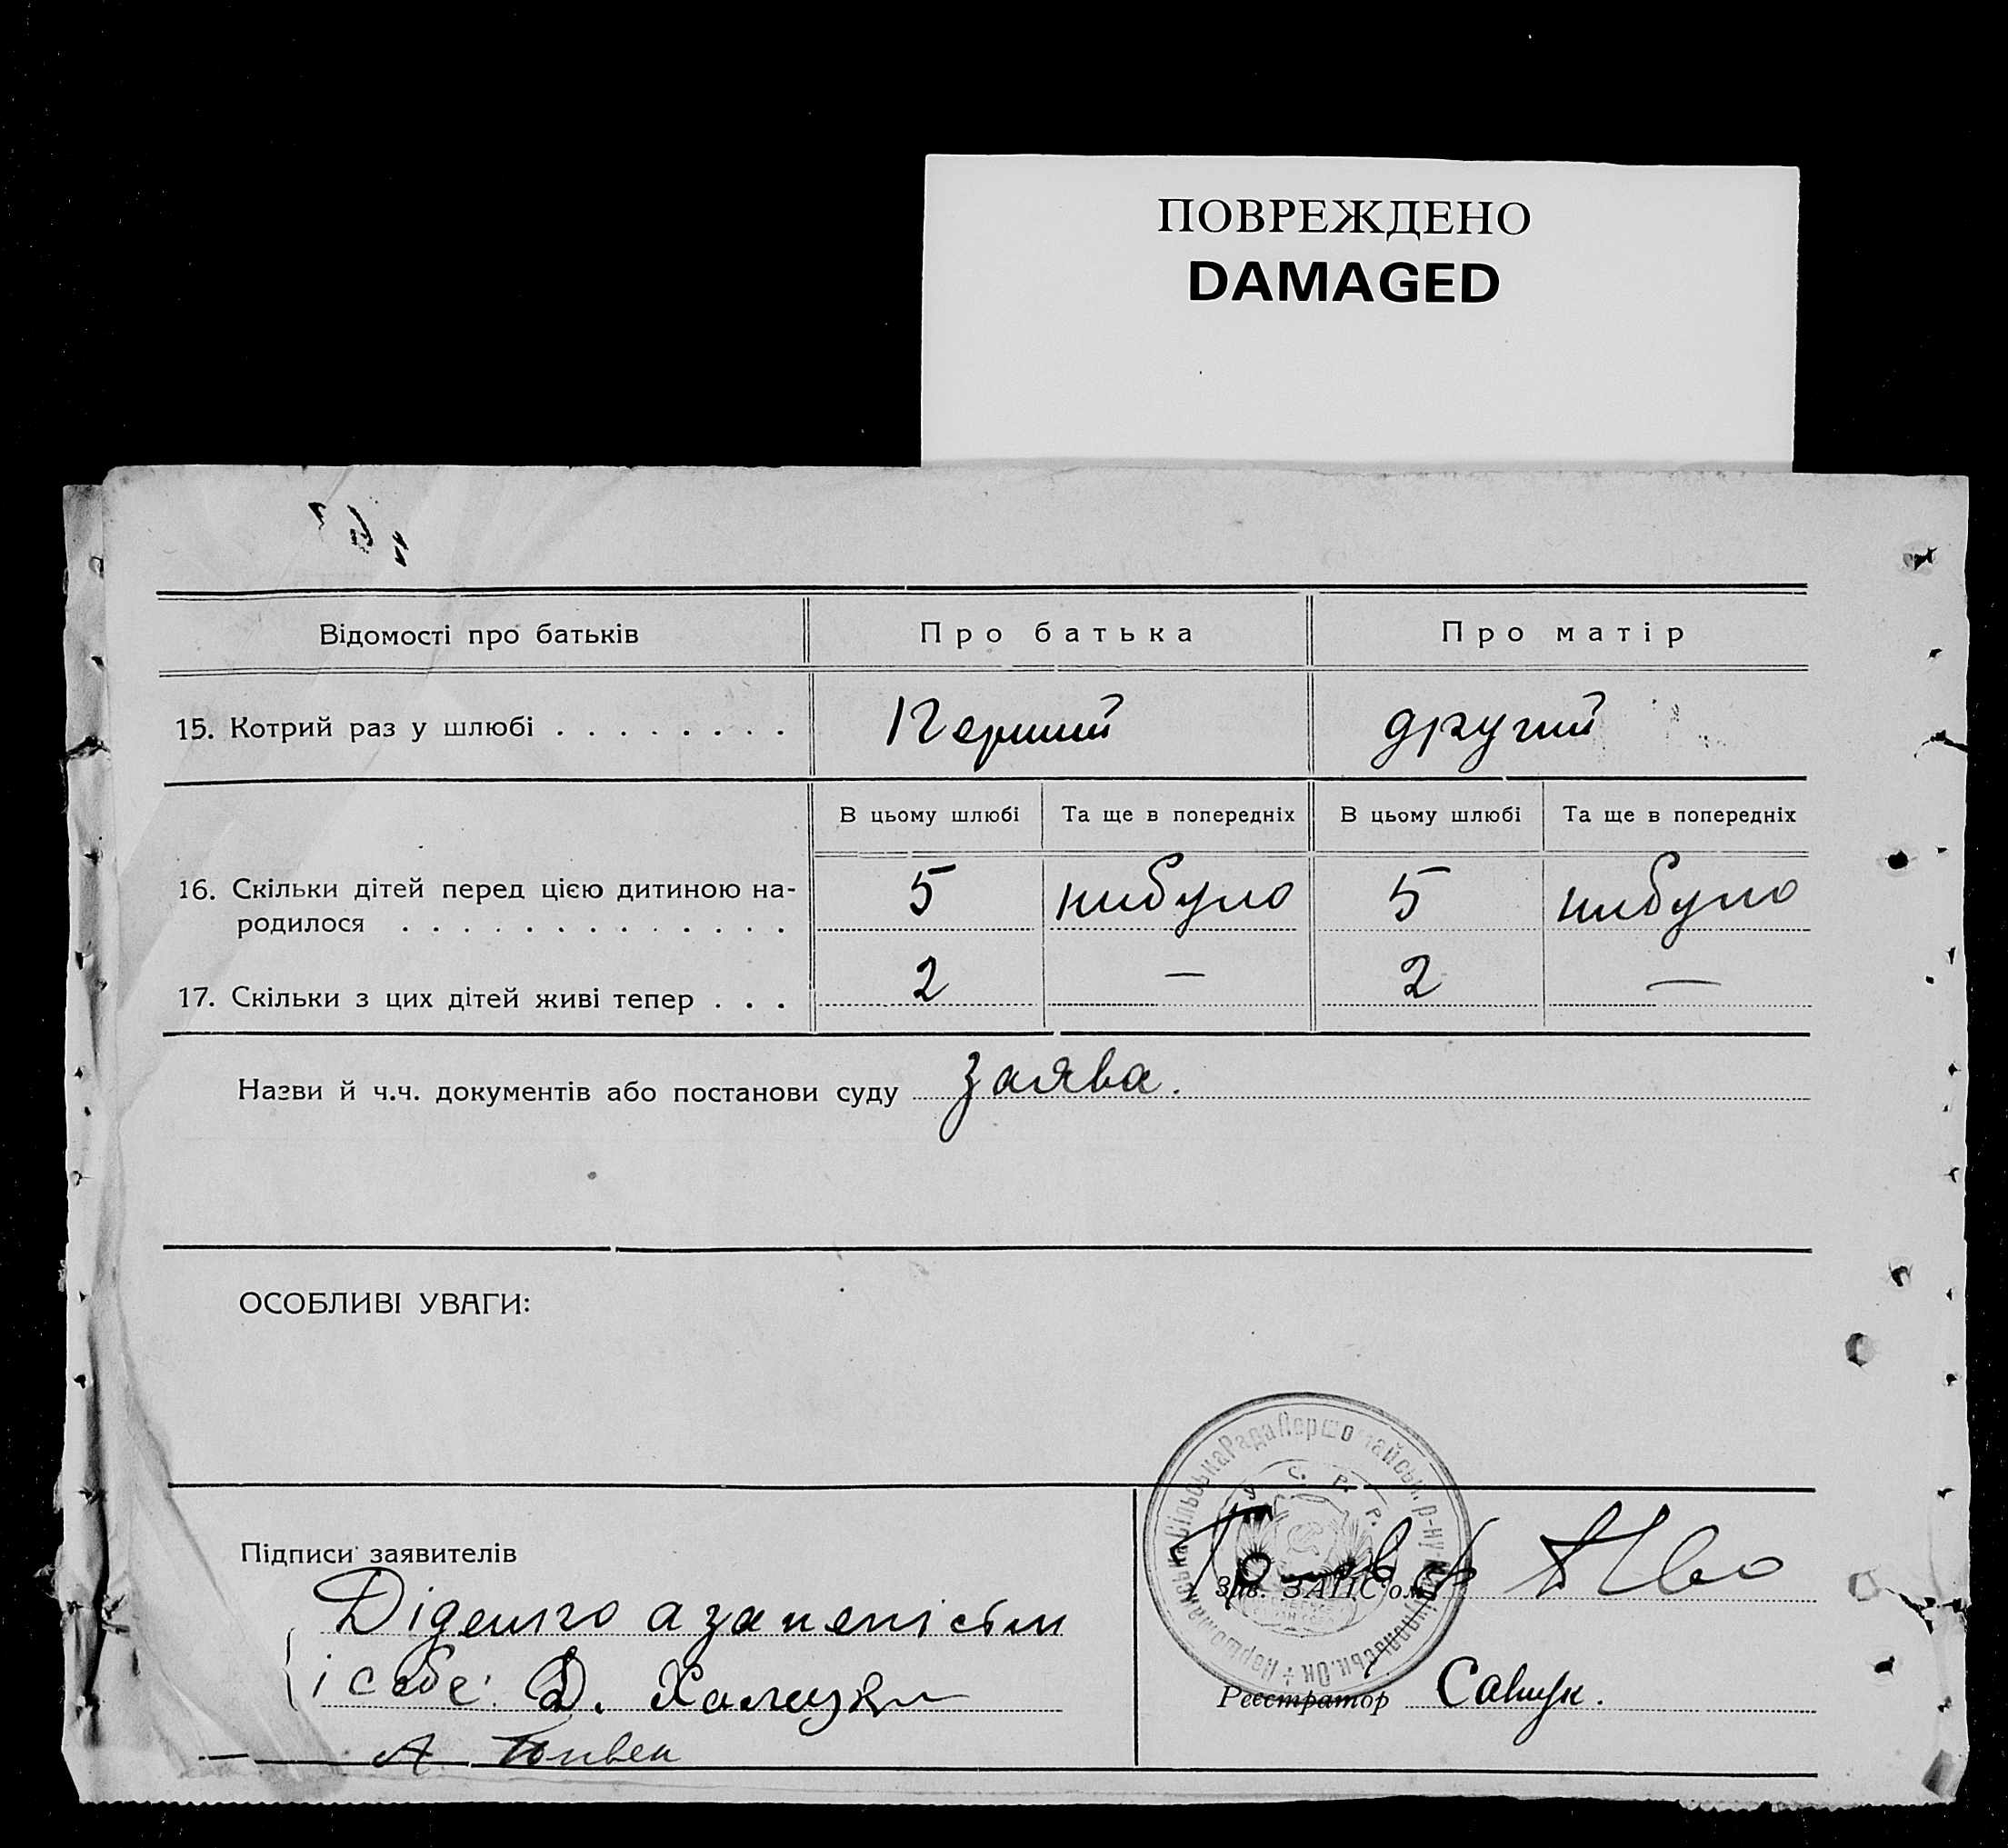 ПОВРЕЖДЕНО
DAMAGED
Відомості про батьків
Про батька
Про матір
15. Котрий раз у шлюбі . . . . . . . .
Перший
другий
В цьому шлюбі
Та ще в попередніх
В цьому шлюбі
Та ще в попередніх
16. Скільки дітей перед цією дитиною на-
родилося . . . . . . . . . . . . .
5
нибуло
5
нибуло
17. Скільки з цих дітей живі тепер . . .
2
—
2
—
Назви й ч.ч. документів або постанови суду Заява.
ОСОБЛИВІ УВАГИ:
Підписи заявителів
і себе: Д.
А.
Зав. ЗАГС'ом
Реєстратор Савчук.
Першомайська Сільська Рада Першомайськ. р-ну